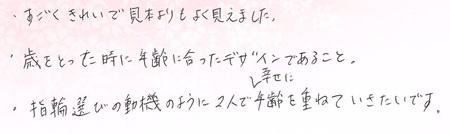 ・すごくきれいで見本よりもよく見えました。
・歳をとった時に年齢に合ったデザインであること。
・指輪選びの動機のように2人で幸せに年齢を重ねていきたいです。